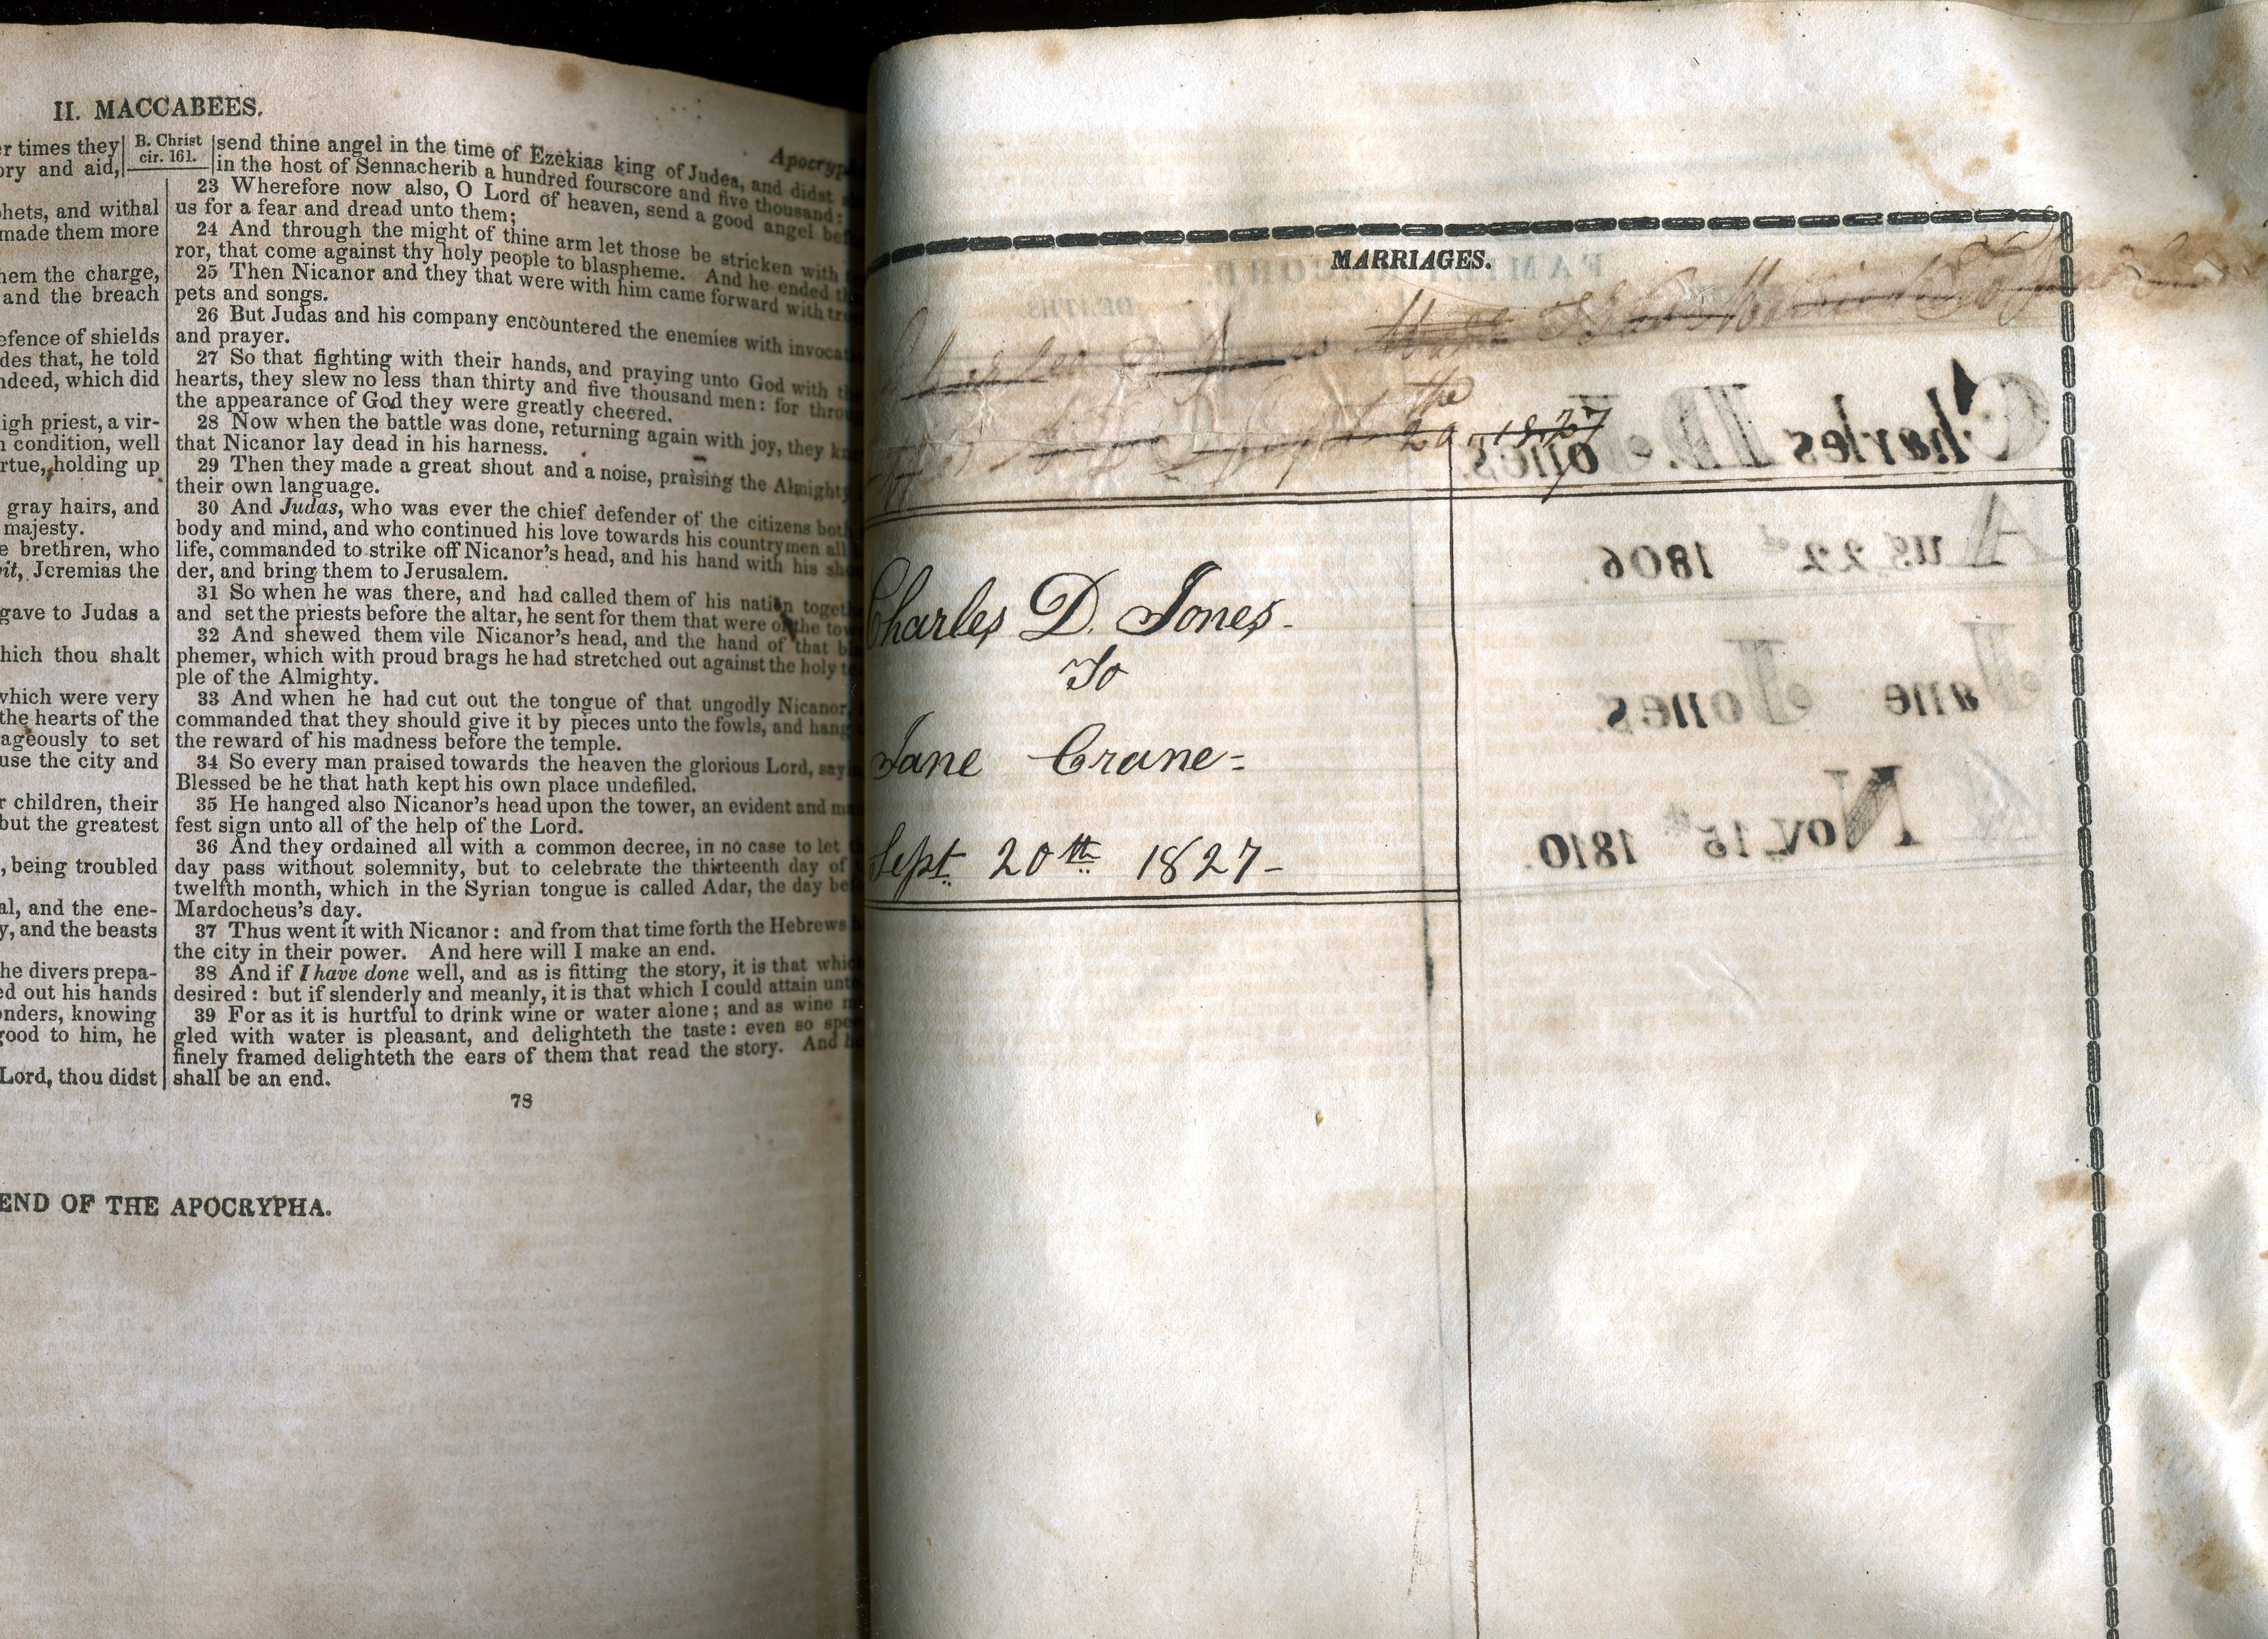 II. MACCABEES.
Apocryp
er times they
ory and aid,
hets, and withal
made them more
hem the charge,
and the breach
efence of shields
des that, he told
ndeed, which did
igh priest, a vir-
n condition, well
rtue, holding up
gray hairs, and
majesty.
e brethren, who
it, Jeremias the
gave to Judas a
hich thou shalt
which were very
the hearts of the
ageously to set
use the city and
r children, their
but the greatest
, being troubled
al, and the ene-
y, and the beasts
he divers prepa-
ed out his hands
onders, knowing
good to him, he
Lord, thou didst
B. Christ
cir. 161.
send thine angel in the time of Ezekias king of Judea, and didst
in the host of Sennacherib a hundred fourscore and five thousand:
23 Wherefore now also, O Lord of heaven, send a good angel bef
us for a fear and dread unto them;
24 And through the might of thine arm let those be stricken with
ror, that come against thy holy people to blaspheme. And he ended th
25 Then Nicanor and they that were with him came forward with tru
pets and songs.
26 But Judas and his company encountered the enemies with invocat
and prayer.
27 So that fighting with their hands, and praying unto God with th
hearts, they slew no less than thirty and five thousand men: for throu
the appearance of God they were greatly cheered.
28 Now when the battle was done, returning again with joy, they kn
that Nicanor lay dead in his harness.
29 Then they made a great shout and a noise, praising the Almighty
their own language.
30 And Judas, who was ever the chief defender of the citizens both
body and mind, and who continued his love towards his countrymen all
life, commanded to strike off Nicanor's head, and his hand with his sho
der, and bring them to Jerusalem.
31 So when he was there, and had called them of his nation togeth
and set the priests before the altar, he sent for them that were of the tow
32 And shewed them vile Nicanor's head, and the hand of that b
phemer, which with proud brags he had stretched out against the holy t
ple of the Almighty.
33 And when he had cut out the tongue of that ungodly Nicanor,
commanded that they should give it by pieces unto the fowls, and hang
the reward of his madness before the temple.
34 So every man praised towards the heaven the glorious Lord, say
Blessed be he that hath kept his own place undefiled.
35 He hanged also Nicanor's head upon the tower, an evident and ma
fest sign unto all of the help of the Lord.
36 And they ordained all with a common decree, in no case to let
day pass without solemnity, but to celebrate the thirteenth day of
twelfth month, which in the Syrian tongue is called Adar, the day be
Mardocheus's day.
37 Thus went it with Nicanor: and from that time forth the Hebrews
the city in their power. And here will I make an end.
38 And if I have done well, and as is fitting the story, it is that whic
desired: but if slenderly and meanly, it is that which I could attain unt
39 For as it is hurtful to drink wine or water alone; and as wine m
gled with water is pleasant, and delighteth the taste: even so spe
finely framed delighteth the ears of them that read the story. And h
shall be an end.
78
END OF THE APOCRYPHA.
MARRIAGES.
Charles D. Jones
20th 1827
Charles D. Jones-
To
Jane Crane=
Sept. 20th 1827-
FAMILY RECORD.
DEATHS.
Charles D. Jones.
Aug 22d 1806.
Jane Jones.
Nov. 15th 1810.